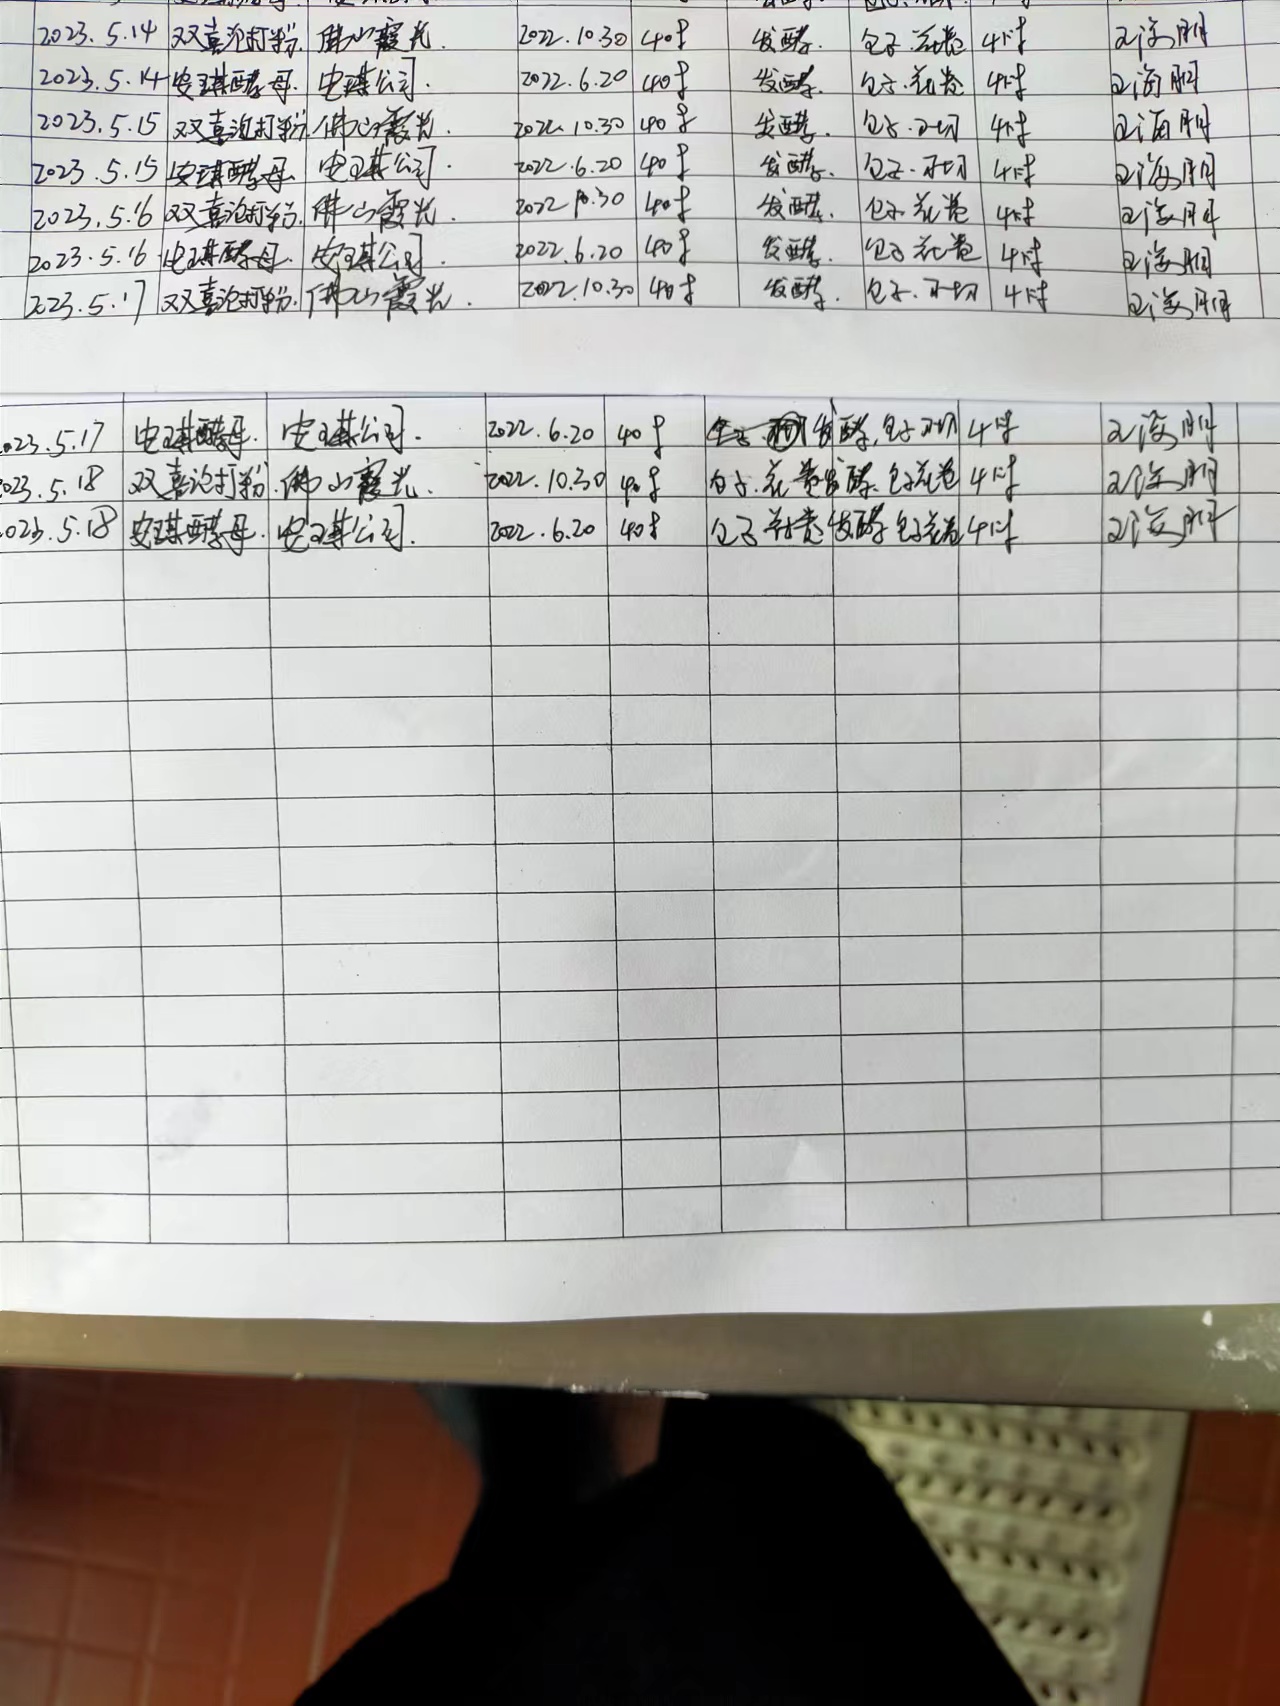 2023.5.14 双喜泡打粉. 佛山霞光 2022.10.30 40g 发酵. 包子.花卷 4时
2023.5.14 安琪酵母. 安琪公司. 2022.6.20 40g 发酵. 包子.花卷 4时
2023.5.15 双喜泡打粉 佛山霞光. 2022.10.30 40g 发酵. 包子.刀切 4时
2023.5.15 安琪酵母. 安琪公司. 2022.6.20 40g 发酵. 包子.刀切 4时
2023.5.16 双喜泡打粉. 佛山霞光. 2022.10.30 40g 发酵. 包子.花卷 4时
2023.5.16 安琪酵母. 安琪公司. 2022.6.20 40g 发酵. 包子花卷 4时
2023.5.17 双喜泡打粉. 佛山霞光. 2022.10.30 40g 发酵. 包子.刀切 4时
023.5.17 安琪酵母. 安琪公司. 2022.6.20 40g 发酵. 包子刀切 4时
023.5.18 双喜泡打粉. 佛山霞光. 2022.10.30 40g 包子.花卷发酵. 包子花卷 4时
023.5.18 安琪酵母. 安琪公司. 2022.6.20 40g 包子花卷 发酵 包子花卷 4时